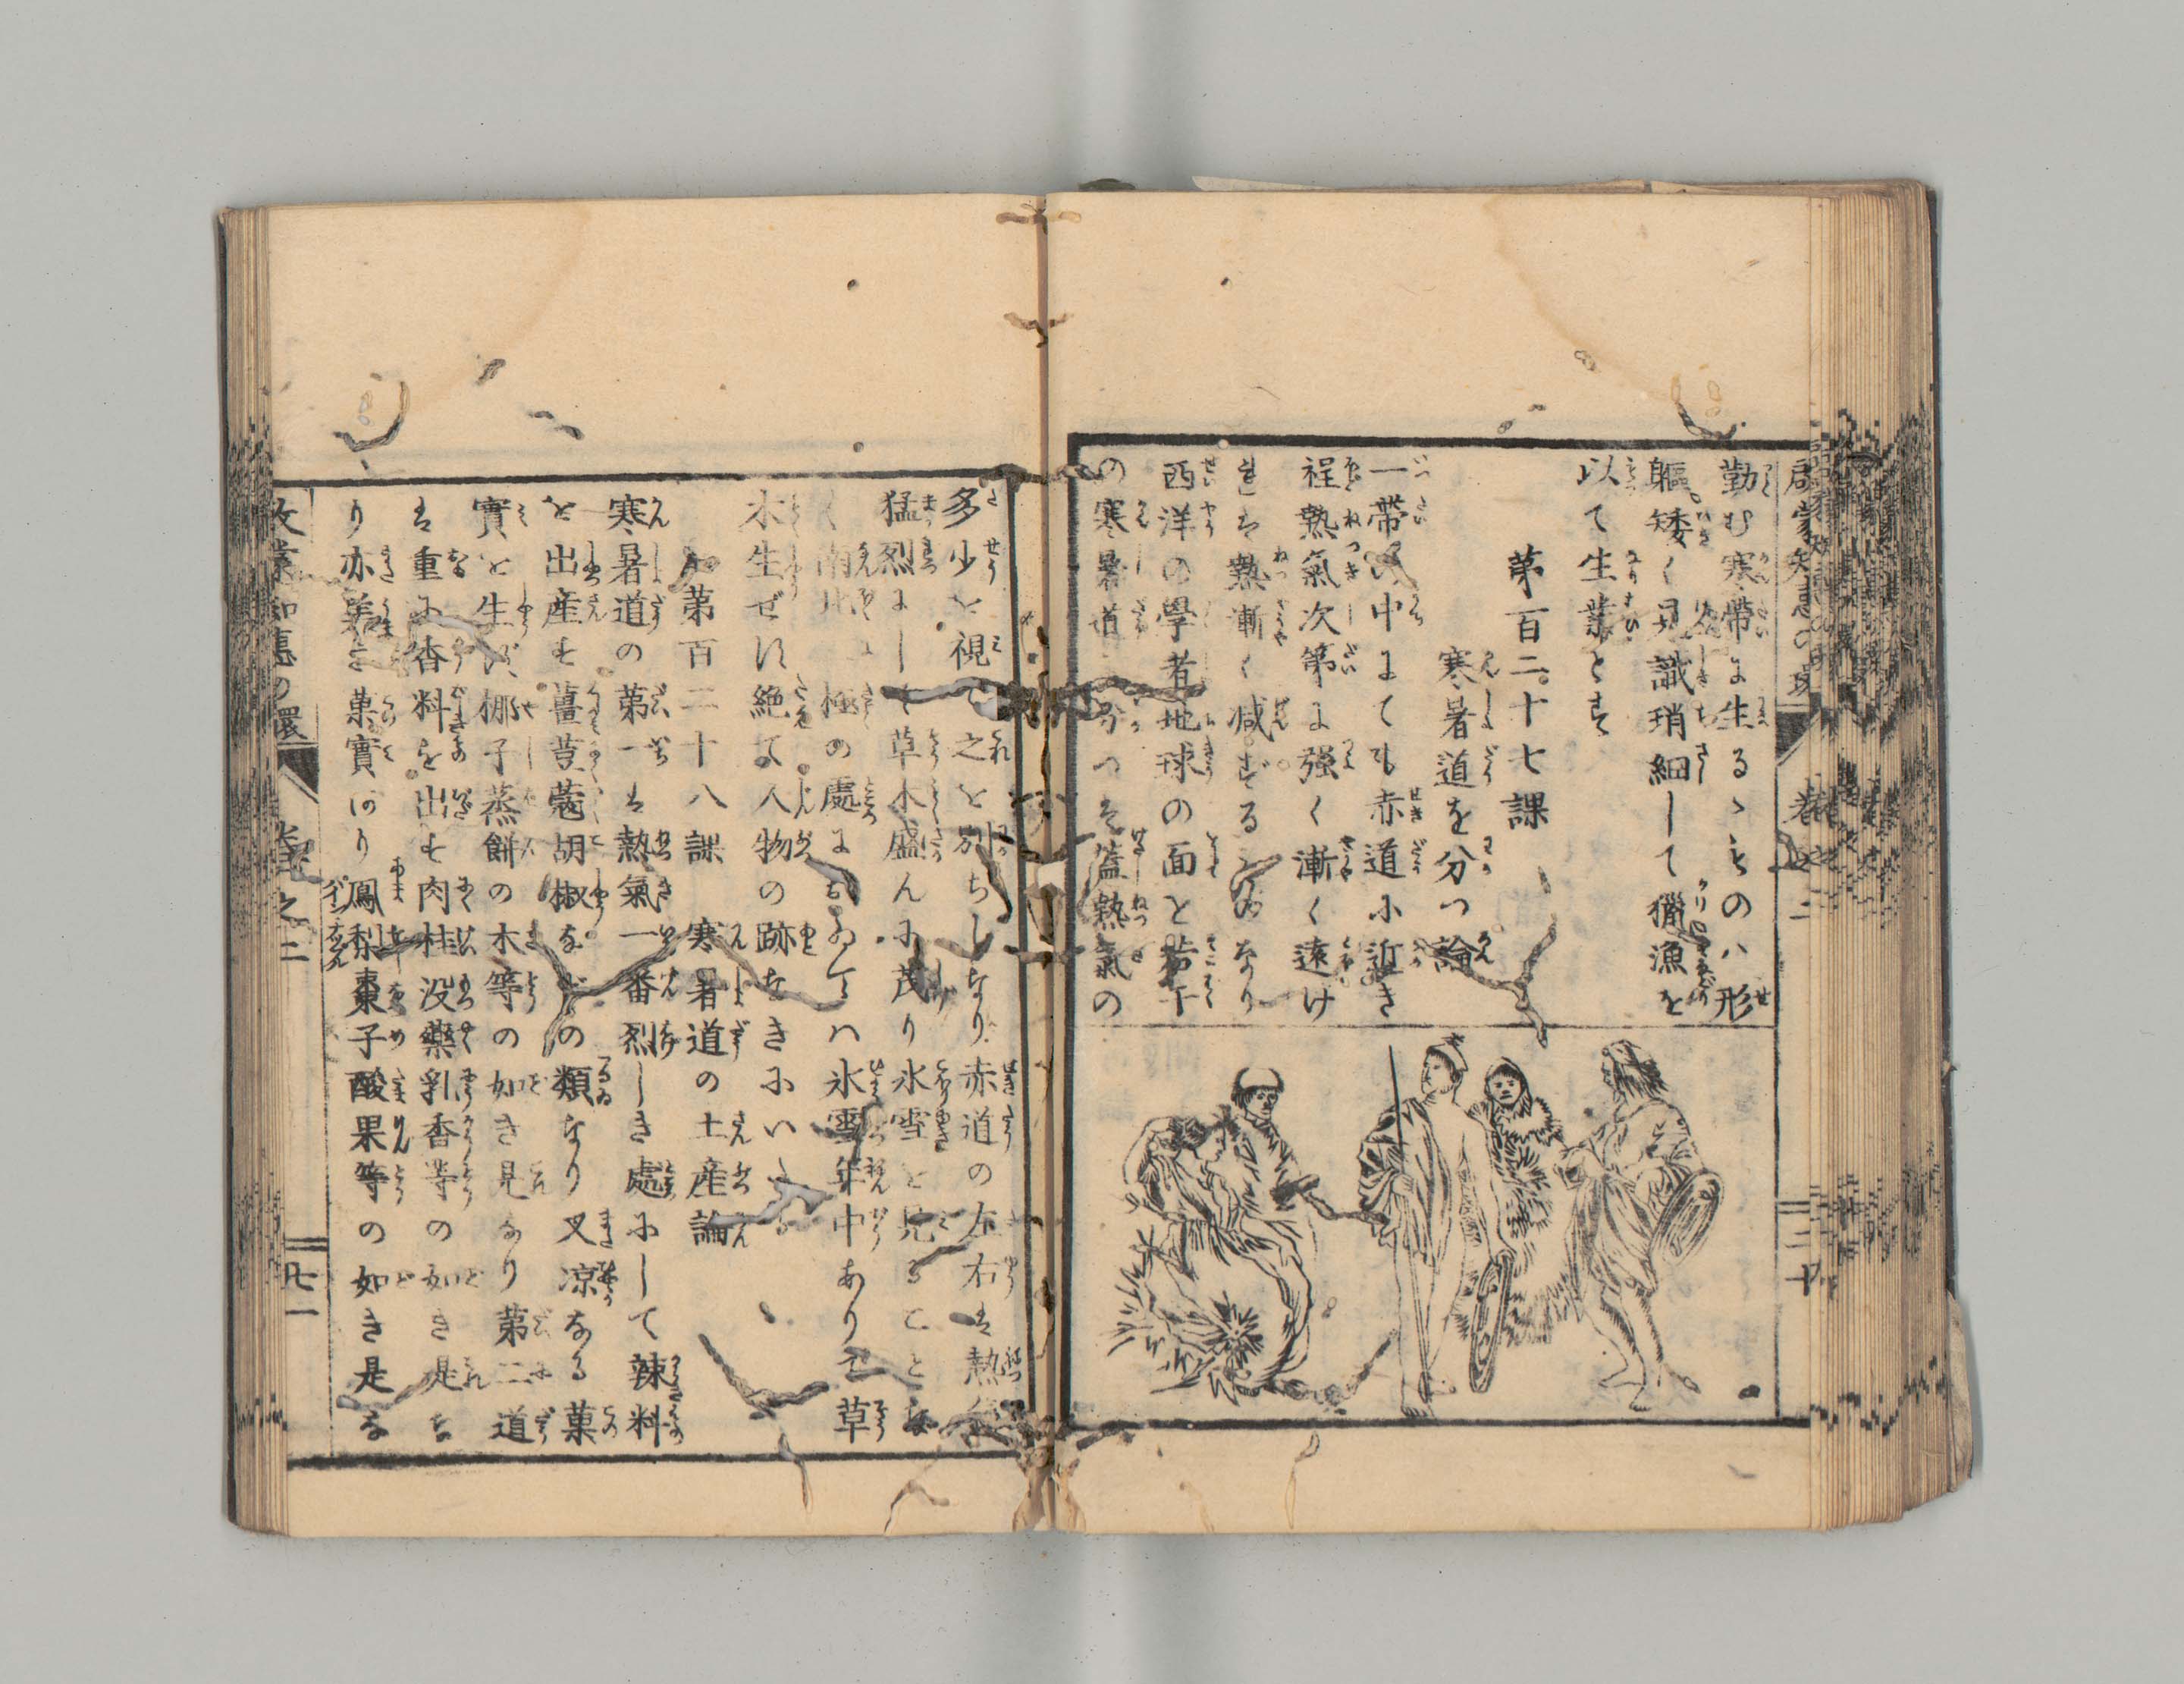 啓蒙知恵の環
巻之二
二十
勤む寒帶に生るゝものハ形
軀矮く見識瑣細して獵漁を
以て生業とす
第百二十七課
寒暑道を分つ論
一帶の中にても赤道に近き
程熱氣次第に强く漸く遠け
れは熱漸く減ずるものなり
西洋の學者地球の面を若干
の寒暑道に分つは蓋熱氣の
多少を視て之を別ちしなり赤道の左右は熱氣
猛烈にして草木盛んに茂り氷雪を見ることな
く南北二極の處におゐてハ氷雪年中ありて草
木生ぜず絶て人物の跡なきにいたる
第百二十八課 寒暑道の土産論
寒暑道の第一は熱氣一番烈しき處にして辣料
を出産す薑荳蔲胡椒などの類なり又凉なる菓
實を生ず椰子蒸餠の木等の如き是なり第二道
は重に香料を出す肉桂没藥乳香等の如き是な
り亦美き菓實あり鳳梨棗子酸果等の如き是な
啓蒙知恵の環
巻之二
廿一